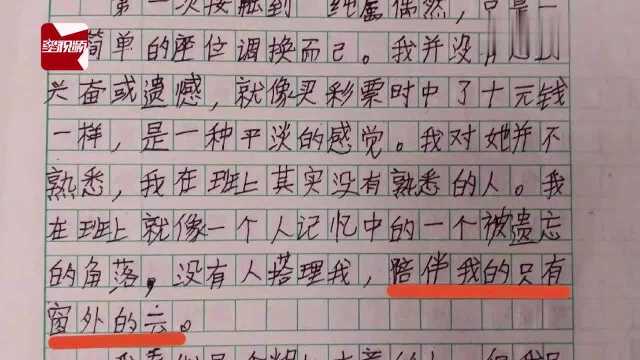 第一次接触到 纯属偶然，只是一
简单的座位调换而已。我并没有
兴奋或遗憾，就像买彩票时中了十元钱
一样，是一种平淡的感觉。我对她并不
熟悉，我在班上其实没有熟悉的人。我
在班上就像一个人记忆中的一个被遗忘
的角落，没有人搭理我，陪伴我的只有
窗外的云。